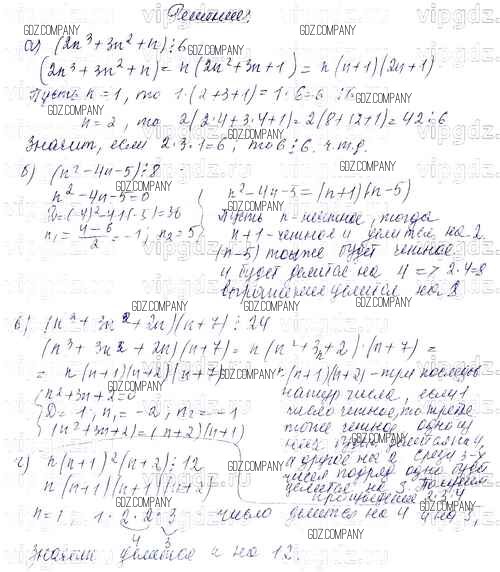 Решение:
а) (2n³+3n²+n)⋮6
(2n³+3n²+n) = n(2n²+3n+1) = n(n+1)(2n+1)
Пусть n=1, то 1·(2+3+1)=1·6=6 ⋮6
n=2, то 2(2·4+3·4+1)=2(8+12+1)=42⋮6
Значит, если 2·3·1=6, то ⋮6. ч.т.д.
б) (n²-4n-5)⋮8
n²-4n-5=0
D=(-4)²-4·1·(-5)=36
n₁ = (4-6)/2 = -1; n₂=5
n²-4n-5=(n+1)(n-5)
Пусть n-нечетное, тогда
n+1-четное и делится на 2
(n-5) тоже будет четное
и будет делится на 4 => 2·4=8
выражение делится на 8
в) (n³+3n²+2n)(n+7)⋮24
(n³+3n2+2n)(n+7)= n(n²+3n+2)·(n+7) =
= n(n+1)(n+2)(n+7)
n²+3n+2=0
D=1; n₁=-2; n₂=-1
(n²+3n+2)=(n+2)(n+1)
n(n+1)(n+2)-три последов
натур числа, если 1
число четное, то третье
тоже четное, одно из
них делится на 4,
а другое на 2. Среди 3-х
чисел подряд одно будет
делится на 3. Получаем
произведение 2·3·4
г) n(n+1)²(n+2)⋮12
n(n+1)(n+1)(n+2)
n=1 1·2·2·3 число делится на 4 и на 3,
4 3
Значит делится и на 12.
GDZ.COMPANY
vipgdz.ru